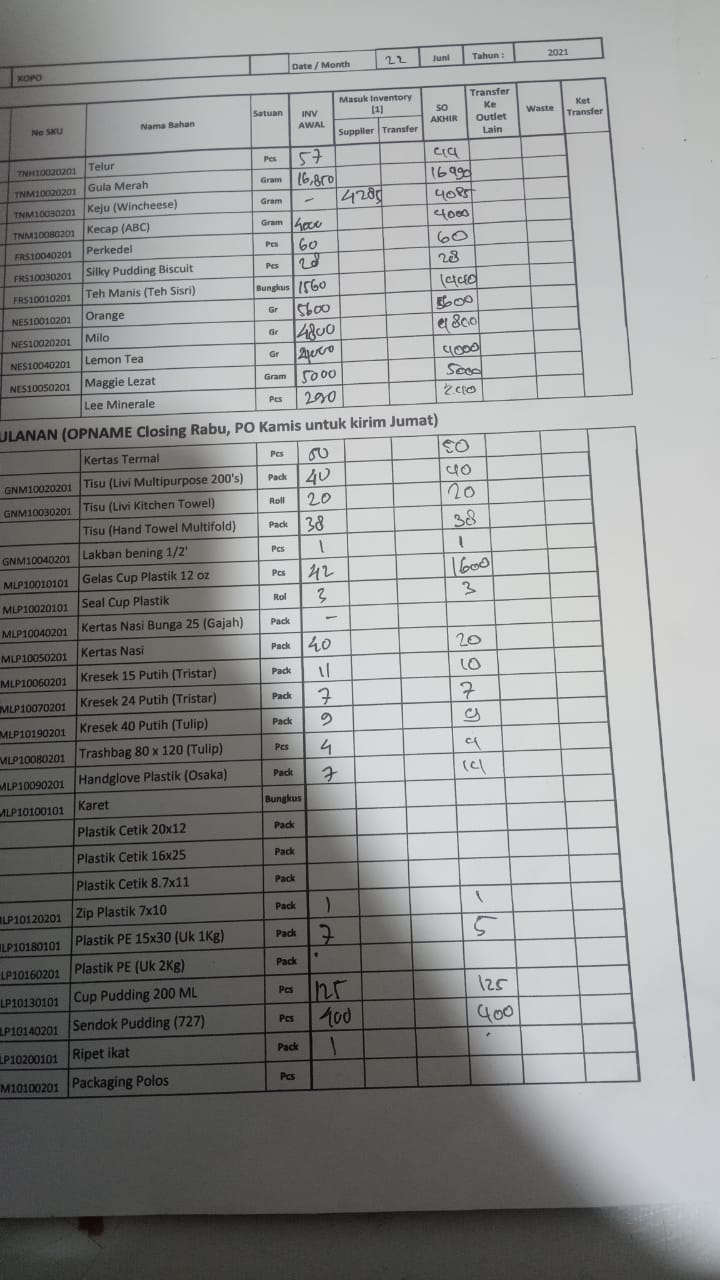 KOPO Date / Month 22 Juni Tahun : 2021
No SKU Nama Bahan Satuan INV AWAL Masuk Inventory [1] Supplier Transfer SO AKHIR Transfer Ke Outlet Lain Waste Ket Transfer
TNH10020201 Telur Pcs 57 44
TNM10020201 Gula Merah Gram 16,850
TNM10030201 Keju (Wincheese) Gram - 4285 4085
TNM10080201 Kecap (ABC) Gram 4000 4000
FRS10040201 Perkedel Pcs 60 60
FRS10030201 Silky Pudding Biscuit Pcs 28 28
FRS10010201 Teh Manis (Teh Sisri) Bungkus 1560 1440
NES10010201 Orange Gr 5600 5600
NES10020201 Milo Gr 4800 4800
NES10040201 Lemon Tea Gr 4000
NES10050201 Maggie Lezat Gram 5000 5000
Lee Minerale Pcs 290
ULANAN (OPNAME Closing Rabu, PO Kamis untuk kirim Jumat)
Kertas Termal Pcs 50
GNM10020201 Tisu (Livi Multipurpose 200's) Pack 40 40
GNM10030201 Tisu (Livi Kitchen Towel) Roll 20 20
Tisu (Hand Towel Multifold) Pack 38 38
GNM10040201 Lakban bening 1/2' Pcs 1 1
MLP10010101 Gelas Cup Plastik 12 oz Pcs 42 1600
MLP10020101 Seal Cup Plastik Rol 3 3
MLP10040201 Kertas Nasi Bunga 25 (Gajah) Pack -
MLP10050201 Kertas Nasi Pack 40 20
MLP10060201 Kresek 15 Putih (Tristar) Pack 11 10
MLP10070201 Kresek 24 Putih (Tristar) Pack 7 7
MLP10190201 Kresek 40 Putih (Tulip) Pack 9 9
MLP10080201 Trashbag 80 x 120 (Tulip) Pcs 4 4
MLP10090201 Handglove Plastik (Osaka) Pack 7 14
MLP10100101 Karet Bungkus
Plastik Cetik 20x12 Pack
Plastik Cetik 16x25 Pack
Plastik Cetik 8.7x11 Pack
LP10120201 Zip Plastik 7x10 Pack 1 1
LP10180101 Plastik PE 15x30 (Uk 1Kg) Pack 7 5
LP10160201 Plastik PE (Uk 2Kg) Pack
LP10130101 Cup Pudding 200 ML Pcs 125 125
LP10140201 Sendok Pudding (727) Pcs 400 400
LP10200101 Ripet ikat Pack 1
M10100201 Packaging Polos Pcs